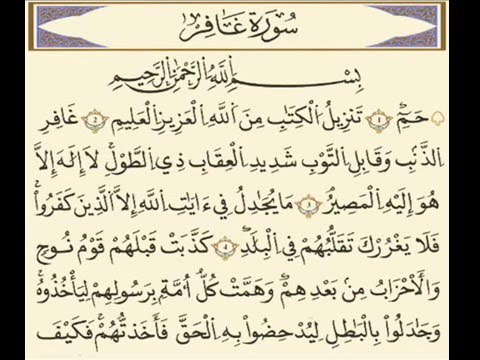 سُورَةُ غَافِرٍ
بِسْمِ اللَّهِ الرَّحْمَٰنِ الرَّحِيمِ
حمٓ ١ تَنزِيلُ الْكِتَٰبِ مِنَ اللَّهِ الْعَزِيزِ الْعَلِيمِ ٢ غَافِرِ
الذَّنۢبِ وَقَابِلِ التَّوْبِ شَدِيدِ الْعِقَابِ ذِي الطَّوْلِ لَا إِلَٰهَ إِلَّا
هُوَ إِلَيْهِ الْمَصِيرُ ٣ مَا يُجَٰدِلُ فِي ءَايَٰتِ اللَّهِ إِلَّا الَّذِينَ كَفَرُوا۟
فَلَا يَغْرُرْكَ تَقَلُّبُهُمْ فِي الْبِلَٰدِ ٤ كَذَّبَتْ قَبْلَهُمْ قَوْمُ نُوحٍ
وَالْأَحْزَابُ مِنۢ بَعْدِهِمْ وَهَمَّتْ كُلُّ أُمَّةٍ بِرَسُولِهِمْ لِيَأْخُذُوهُ
وَجَٰدَلُوا۟ بِالْبَٰطِلِ لِيُدْحِضُوا۟ بِهِ الْحَقَّ فَأَخَذتُّهُمْ فَكَيْفَ